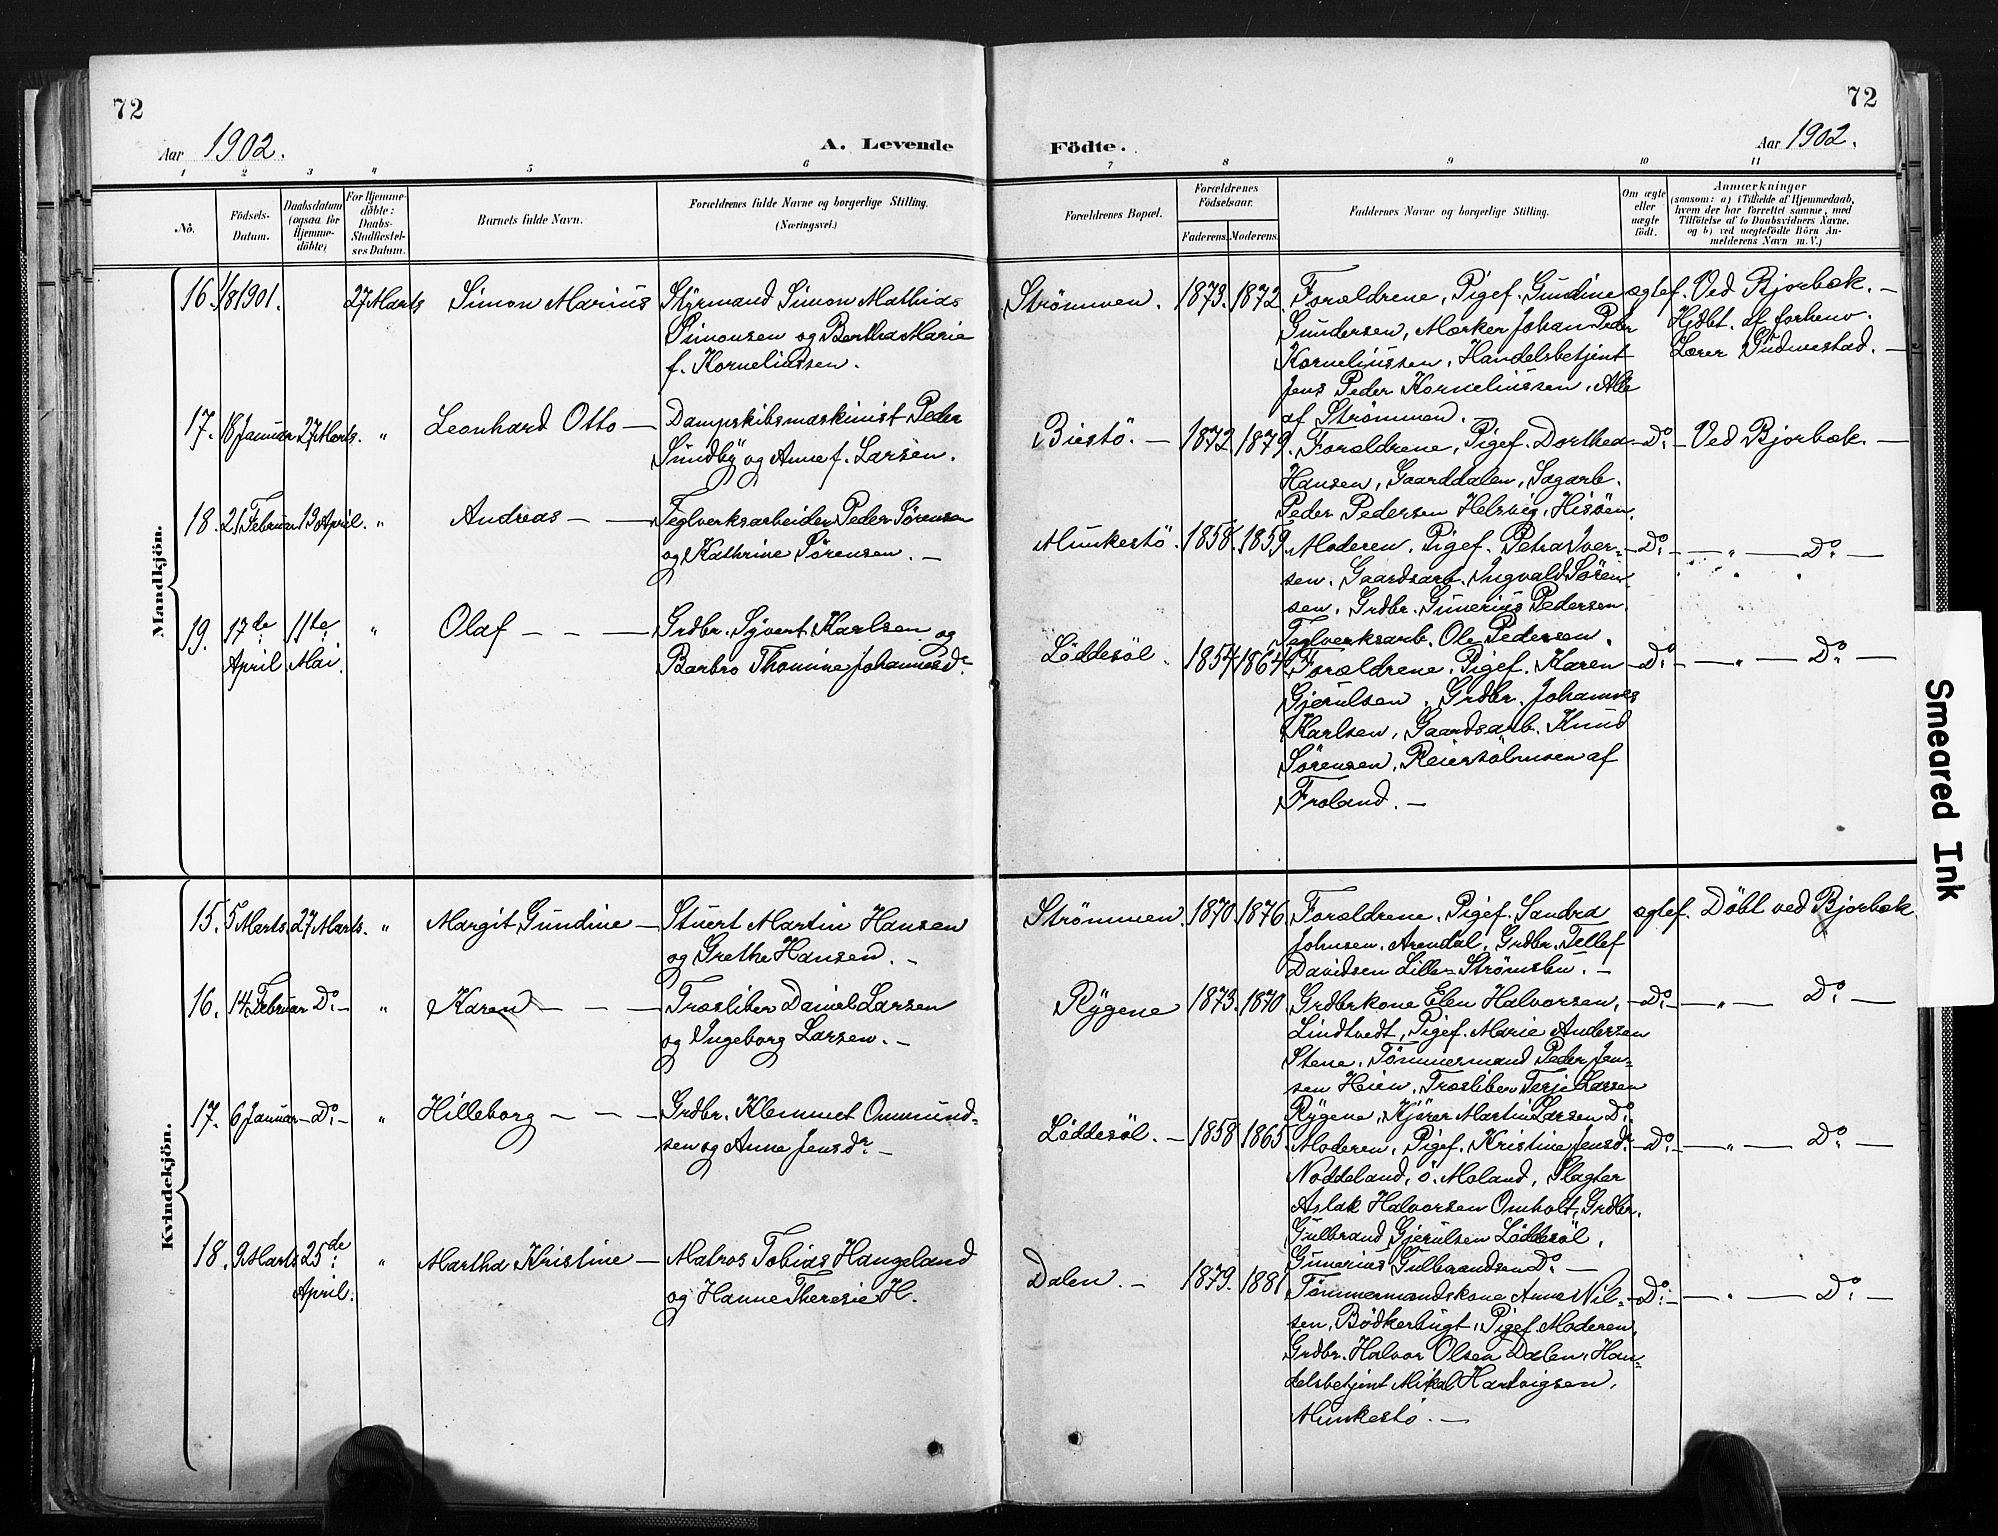 72
72
Aar 1902.
A. Levende
Födte.
Aar 1902.
1 2 3 4 5 6 7 8 9 10 11
No.
Födsels-
Datum.
Daabsdatum
(ogsaa for
Hjemme-
döbte)
For Hjemme-
döbte:
Daabs-
Stadfæstel-
ses Datum.
Barnets fulde Navn.
Forældrenes fulde Navne og borgerlige Stilling.
(Næringsvei.)
Forældrenes Bopæl.
Forældrenes
Födselsaar.
Faderens.
Moderens.
Faddernes Navne og borgerlige Stilling.
Om ægte
eller
uægte
födt.
Anmærkninger
(saasom: a) i Tilfælde af Hjemmedaab,
hvem der har forrettet samme, med
Tilföielse af to Daabsvidners Navne,
og b) ved uegtefödte Börn An-
melderens Navn m. V.)
Mandkjön.
16. 1/8 1901. 27 Marts Simon Marius
Styrmand Simon Mathias
Simonsen og Bertha Marie
f. Korneliussen.
Strømmen. 1873. 1872.
Forældrene, Pigef. Gundine
Gundersen, Mærker Johan Peder
Korneliussen, Handelsbetjent
Jens Peder Korneliussen, Alle
af Strømmen.
ægtef. Ved Bjorbæk. —
Hjdbt. af forhenv.
Lærer Gudmestad. —
17. 18 Januar 27 Marts. " Leonhard Otto —
Dampskibsmaskinist Peder
Sundby og Anne f. Larsen.
Biestö. — 1872. 1879.
Forældrene, Pigef. Dorthea
Hansen, Gaarddalen, Sagarb.
Peder Pedersen Helsvig, Hisöen.
Do. — Ved Bjorbæk. —
18. 21 Februar 13 April. " Andreas — —
Teglverksarbeider Peder Sørensen
og Kathrine Sørensen. —
Munkestö. 1858. 1859.
Moderen, Pigef. Petra Iver-
sen, Gaardsarb. Ingvald Sören-
sen, Grdbr. Gunerius Pedersen,
Teglverksarb. Ole Pedersen.
Do. — " — Do. —
19. 17de April 11te Mai. " Olaf — — —
Grdbr. Syvert Karlsen og
Barbro Thomine Johannesdr.
Löddesöl. 1854 1864
Forældrene, Pigef. Karen
Gjerulsen, Grdbr. Johannes
Karlsen, Gaardsarb. Knud
Sörensen, Reiersölmoen af
Froland. —
Do. — " — Do. —
Kvindekjön.
15. 5 Marts 27 Marts. " Margit Gundine —
Stuert Martin Hansen
og Grethe Hansen. —
Strømmen. 1870. 1876.
Forældrene, Pigef. Sandra
Johnsen, Arendal, Grdbr. Tellef
Davidsen Lille-Strømsbu. —
ægtef. Döbt ved Bjorbæk
16. 14 Februar Do. — " Karen — — —
Træsliber Daniel Larsen
og Ingeborg Larsen. —
Rygene 1873. 1870.
Grdbrkone Elen Halvorsen,
Lindtvedt, Pigef. Marie Andersen
Stene, Tömmermand Peder Jen-
sen Heien, Træsliber Terje Larsen
Rygene, Kjörer Martin Larsen Do.
Do. — " — Do. —
17. 6 Januar — Do. — " Hilleborg — — —
Grdbr. Klemmet Ommund-
sen og Anne Jensdr. —
Löddesöl. — 1858 1865
Moderen, Pigef. Kristine Jensdr.
Noddeland, ö. Moland, Slagter
Aslak Halvorsen Omholt, Grdbr.
Gulbrand Gjerulsen Löddesöl,
Gunerius Gulbrandsen Do. —
Do. — " — Do. —
18. 9 Marts 25de April. " Martha Kristine —
Matros Tobias Haugeland
og Hanne Theresie H.
Dalen. — 1879. 1881
Tömmermandskone Anne Nil-
sen, Bödkerbugt, Pigef. Moderen,
Grdbr. Halvor Olsen Dalen, Han-
delsbetjent Mikal Hartvigsen,
Munkestö. —
Do. — " — Do. —
Smeared Ink